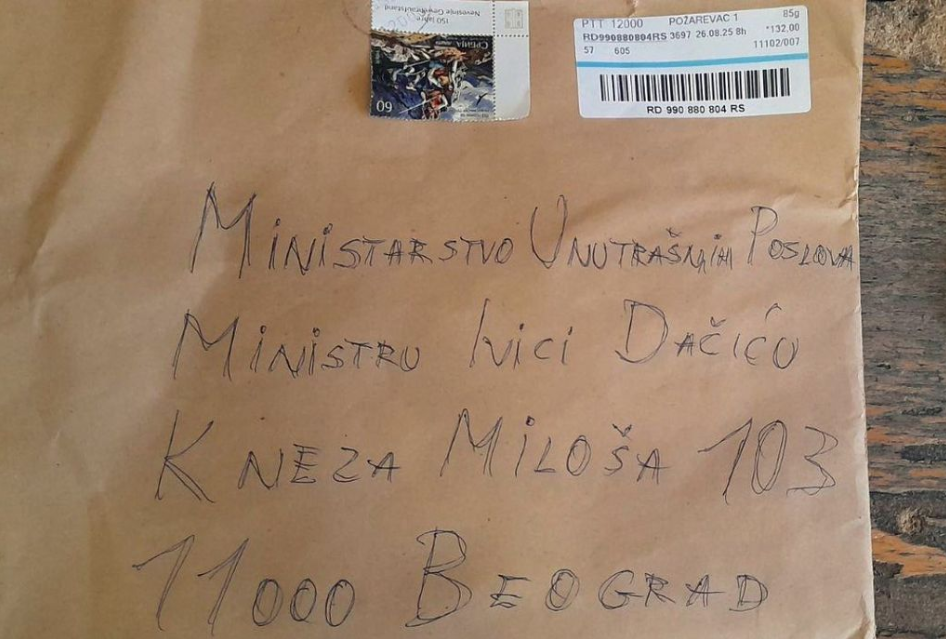 150 jahre
Nevesinje Gewehraufstand
СРБИЈА
60
PTT 12000 POŽAREVAC 1 85g
RD990880804RS 3697 26.08.25 8h *132,00
57 605 11102/007
RD 990 880 804 RS
MINISTARSTVO UNUTRAŠNJIH POSLOVA
MINISTRU IVICI DAČIĆU
KNEZA MILOŠA 103
11000 BEOGRAD